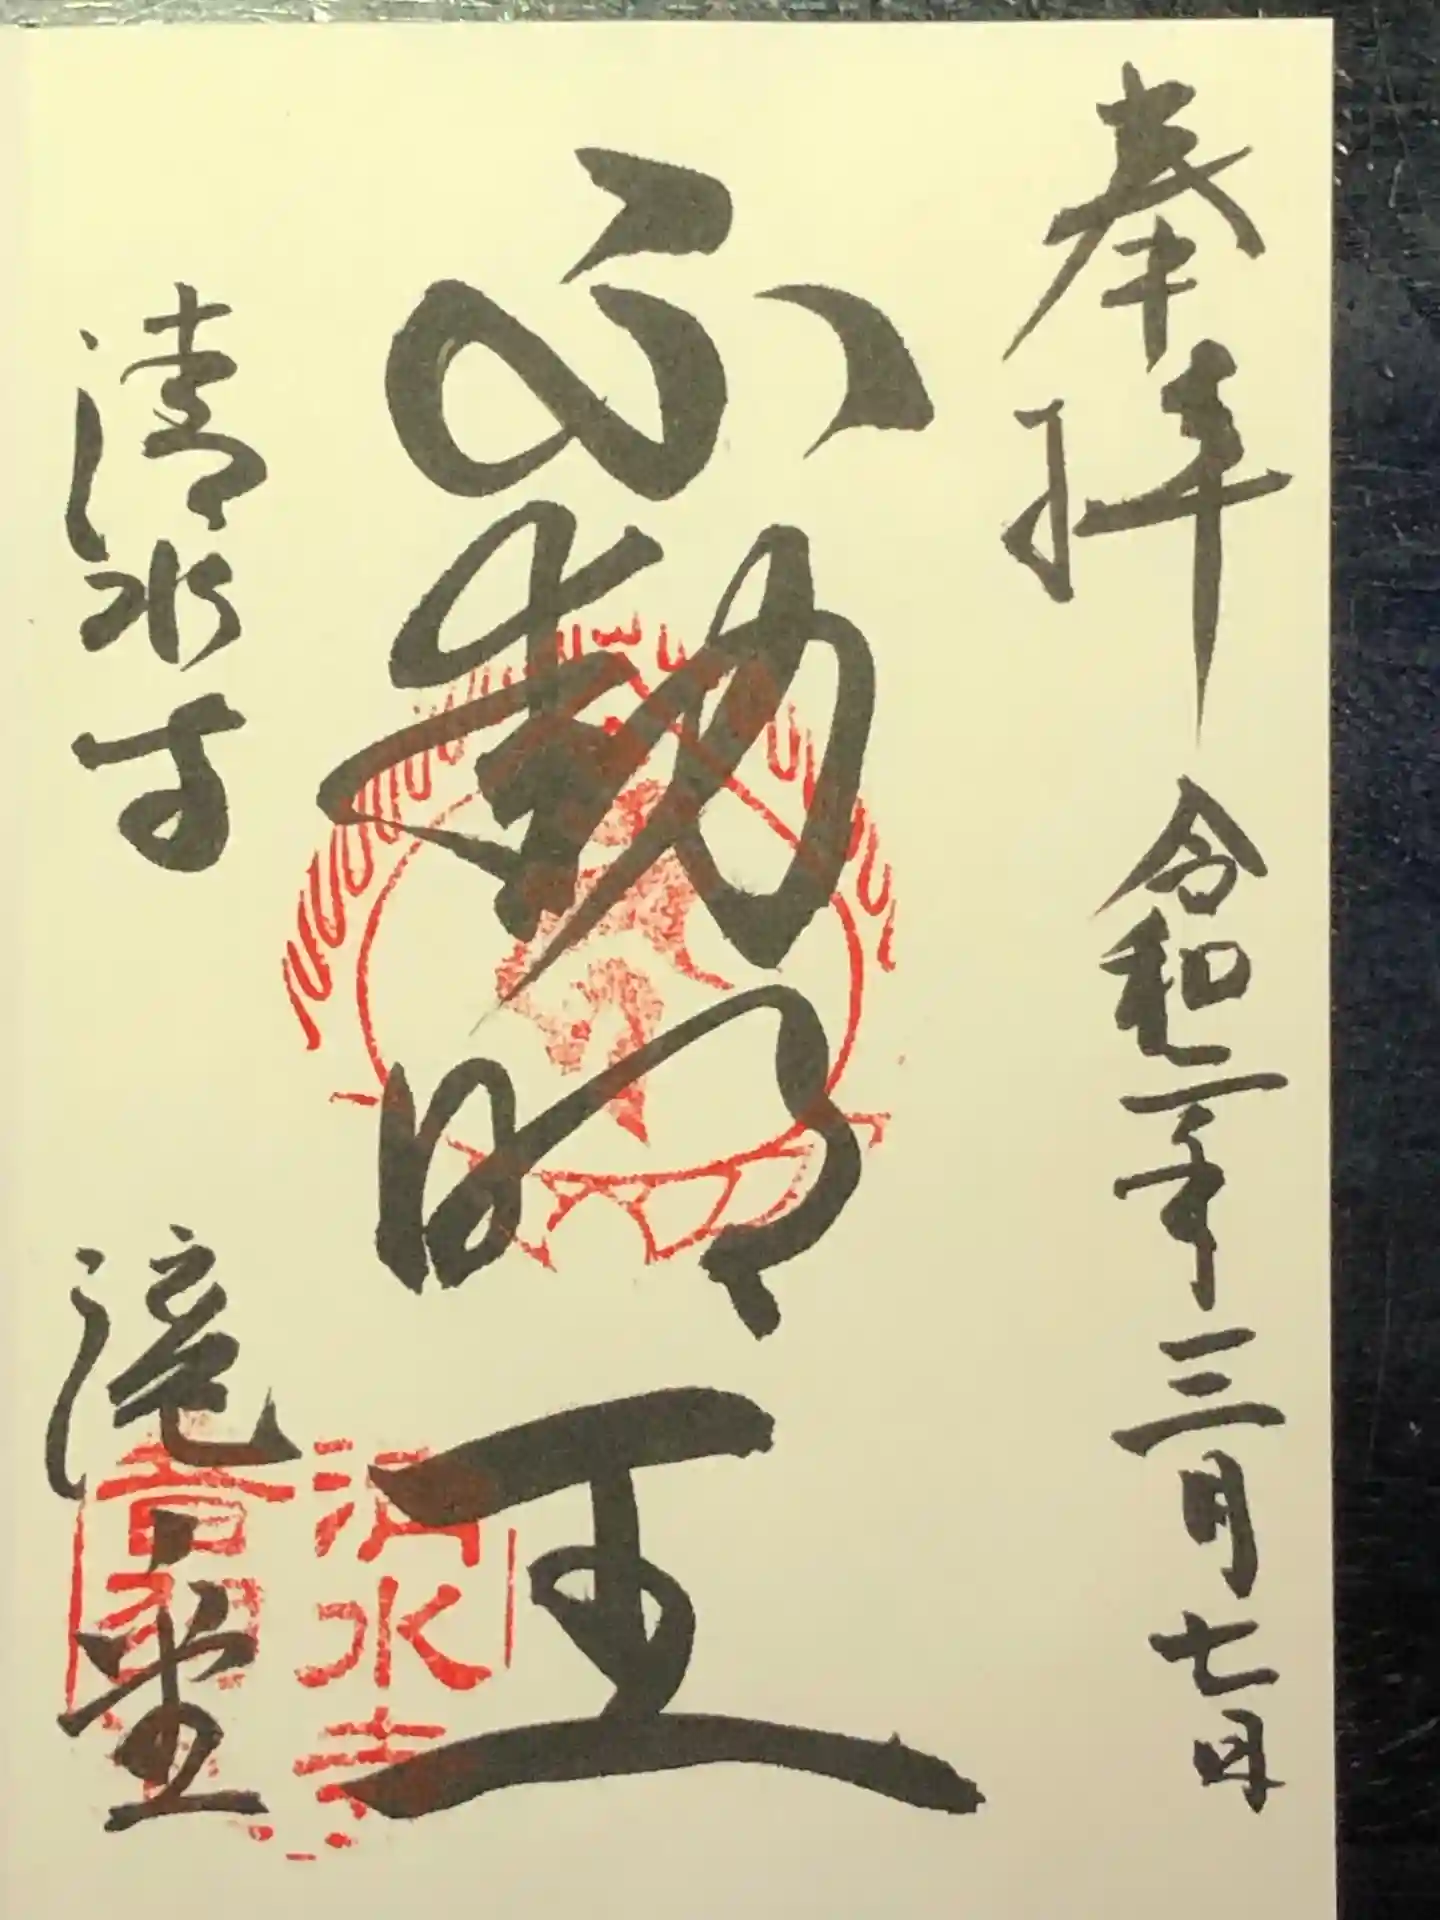 奉拝 令和二年三月七日
不動明王
清水寺 滝堂
清水寺